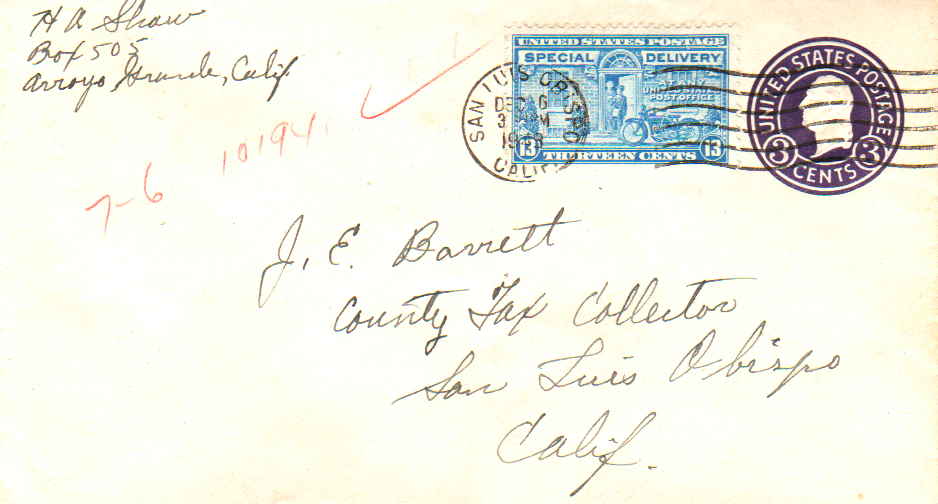 H A Shaw
Box 505
Arroyo Grande, Calif
7-6 10194
UNITED STATES POSTAGE
SPECIAL DELIVERY
UNITED STATES
POST OFFICE
13 THIRTEEN CENTS 13
SAN LUIS OBISPO
DEC 6
3 PM
CALIF.
UNITED STATES POSTAGE
3 CENTS 3
J. E. Barrett
County Tax Collector
San Luis Obispo
Calif.